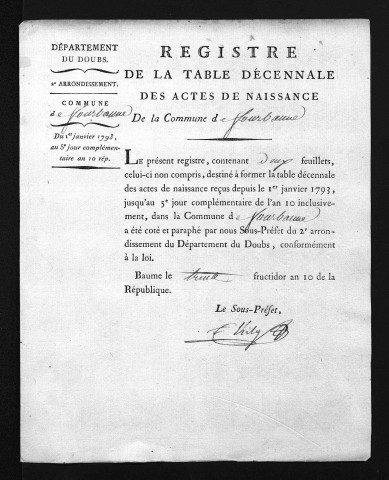 DÉPARTEMENT
DU DOUBS.
2e ARRONDISSEMENT.
COMMUNE
de Fourbanne
Du 1er janvier 1793,
au 5e jour complémen-
taire an 10 rép.
REGISTRE
DE LA TABLE DÉCENNALE
DES ACTES DE NAISSANCE
De la Commune de Fourbanne
LE présent registre, contenant deux feuillets,
celui-ci non compris, destiné à former la table décennale
des actes de naissance reçus depuis le 1er janvier 1793,
jusqu'au 5e jour complémentaire de l'an 10 inclusive-
ment, dans la Commune de Fourbanne
a été coté et paraphé par nous Sous-Préfet du 2e arron-
dissement du Département du Doubs, conformément
à la loi.
Baume le trente fructidor an 10 de la
République.
Le Sous-Préfet,